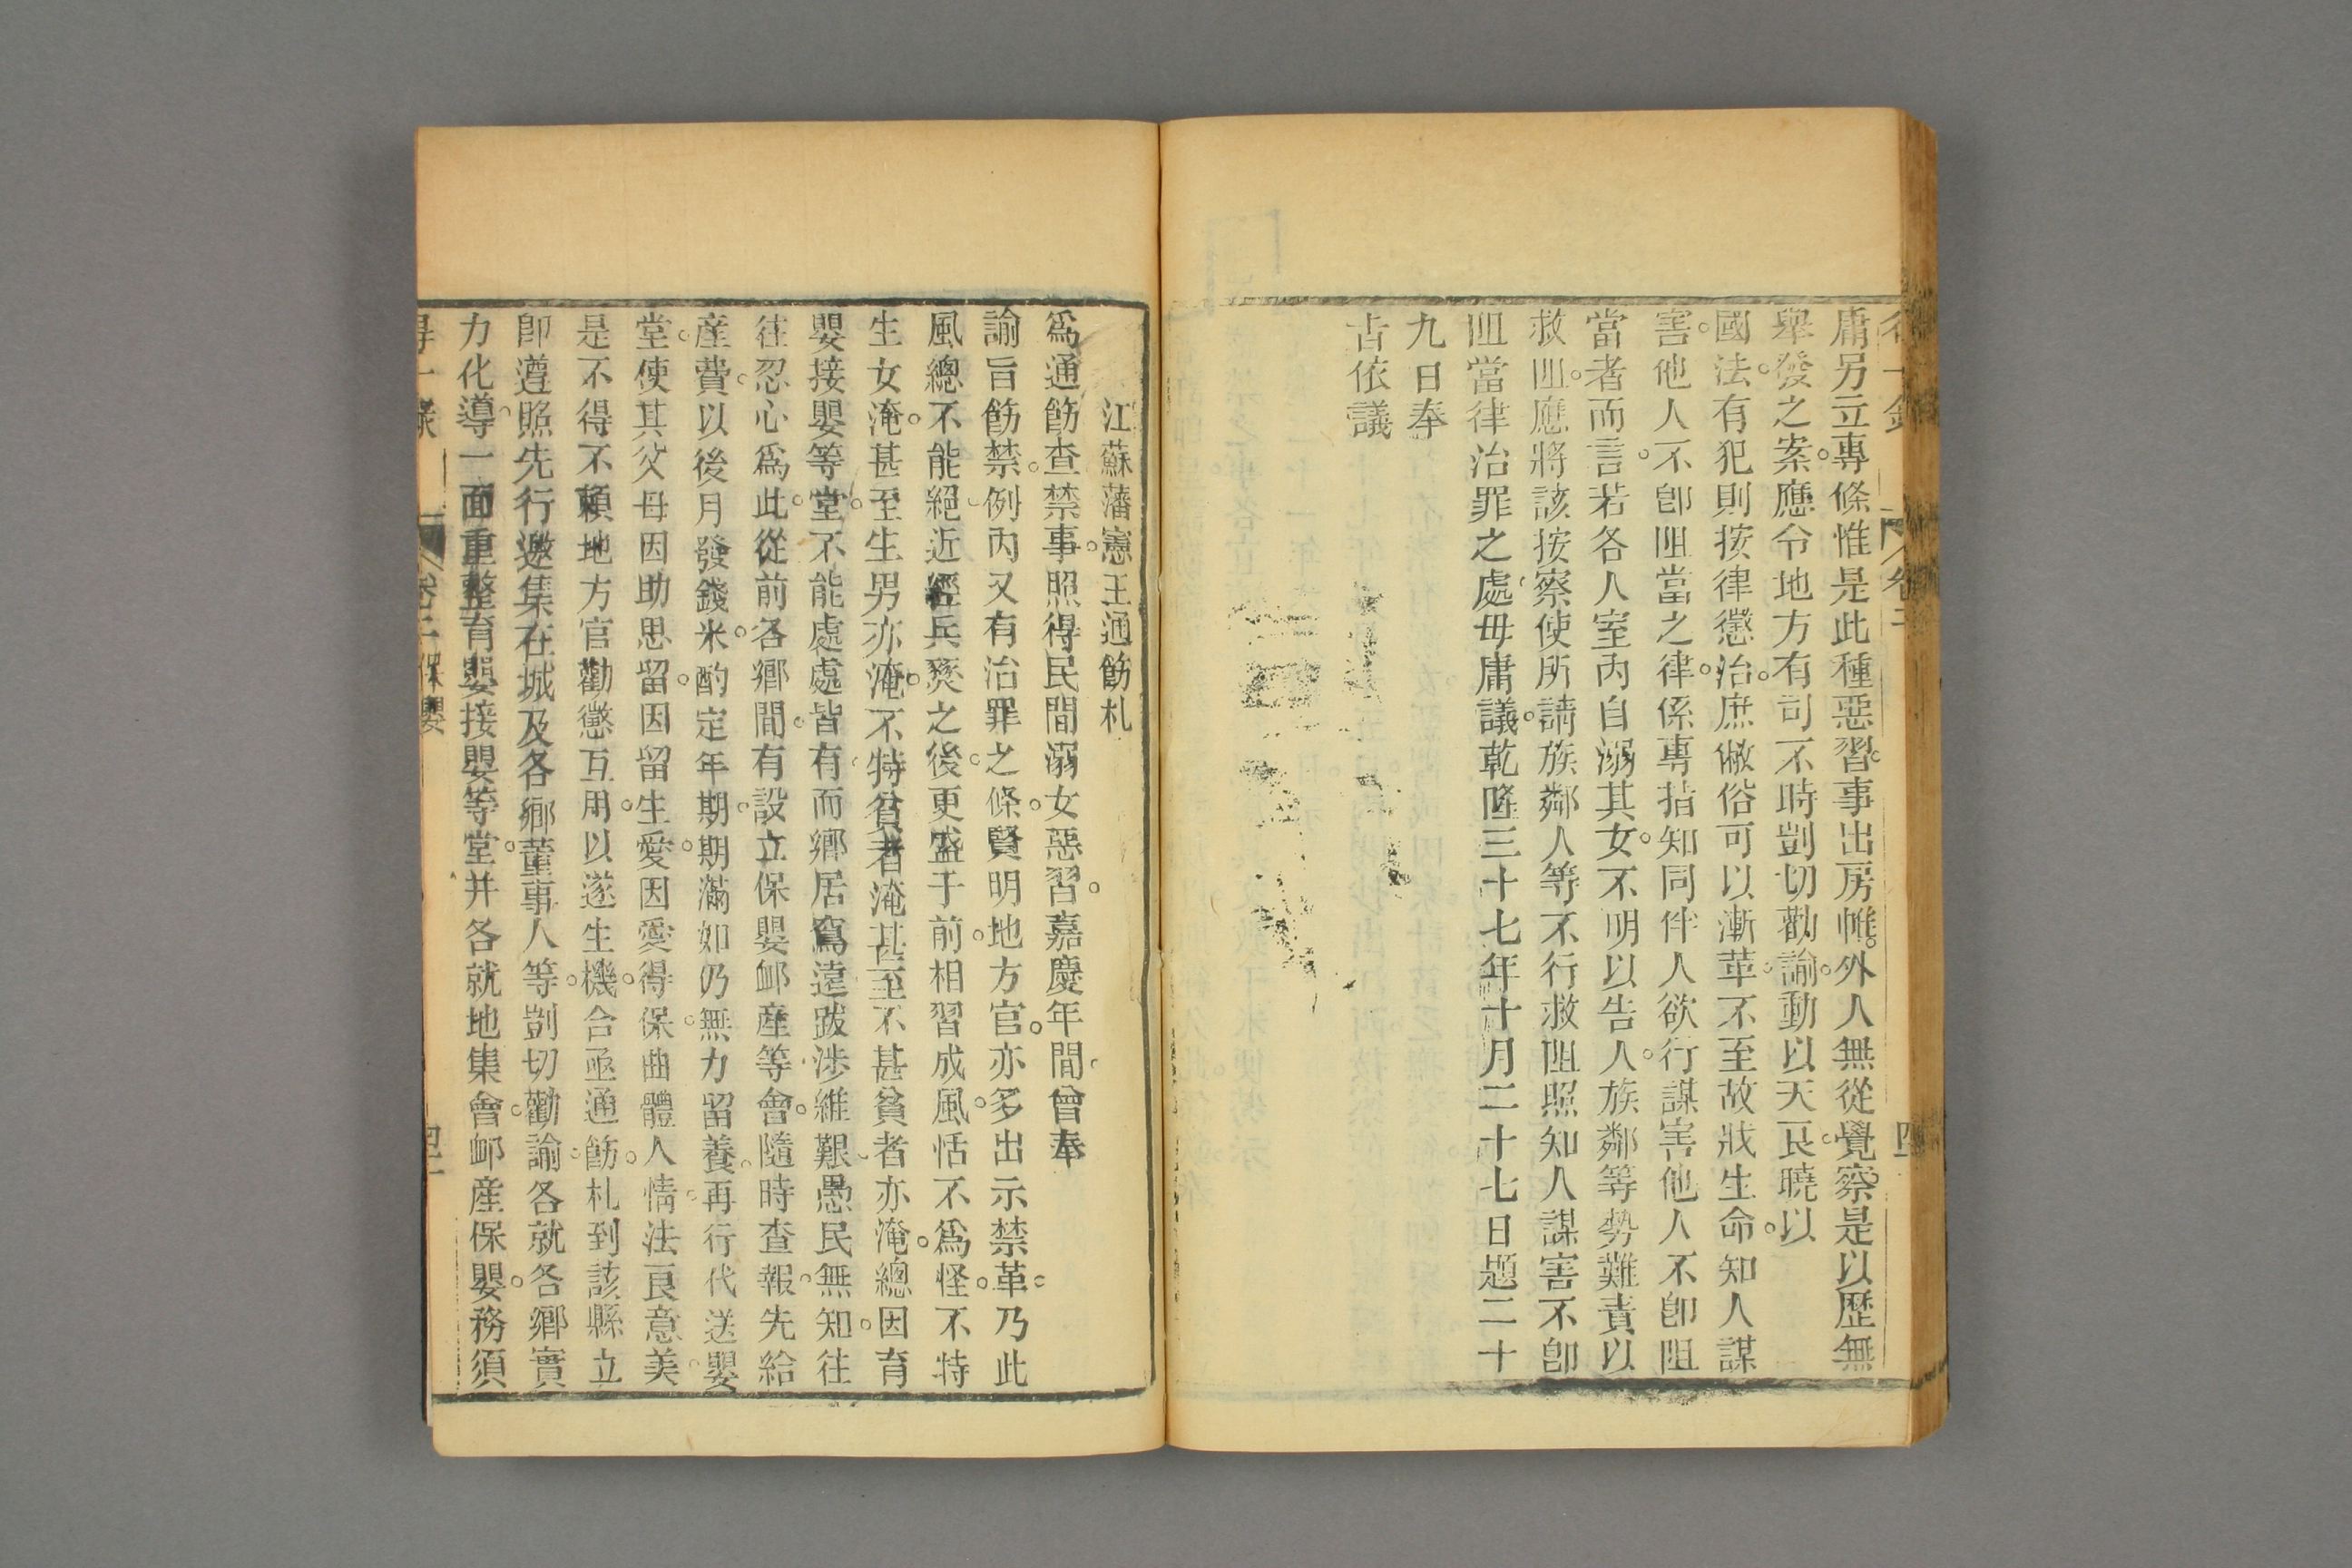 庸另立專條惟是此種惡習。事出房帷。外人無從覺察。是以歷無
舉發之案。應令地方有司不時剴切勸諭。動以天良。曉以
國法。有犯則按律懲治。庶僌俗可以漸革。不至故戕生命。知人謀
害。他人不卽阻當之律。係專指知同伴人欲行謀害他人不卽阻
當者而言。若各人室內自溺其女。不明以告人。族鄰等勢難責以
救阻。應將該按察使所請族鄰人等不行救阻照知人謀害不卽
阻當律治罪之處毋庸議。乾隆三十七年十月二十七日題二十
九日奉
旨依議
江蘇藩憲王通飭札
爲通飭查禁事。照得民間溺女惡習。嘉慶年間。曾奉
諭旨飭禁。例內又有治罪之條。賢明地方官。亦多出示禁革。乃此
風總不能絕。近經兵燹之後。更盛于前。相習成風。恬不爲怪。不特
生女淹。甚至生男亦淹。不特貧者淹甚至不甚貧者亦淹。總因育
嬰接嬰等堂。不能處處皆有。而鄉居窵遠。跋涉維艱。愚民無知。往
往忍心爲此。從前各鄉間。有設立保嬰䘏產等會。隨時查報。先給
産費。以後月發錢米。酌定年期。期滿如仍無力留養。再行代送嬰
堂。使其父母因助思留。因留生愛。因愛得保。曲體人情。法良意美。
是不得不賴地方官勸懲互用。以遂生機。合亟通飭。札到該縣立
卽遵照先行邀集在城及各鄉董事人等。剴切勸諭。各就各鄉實
力化導。一面重整育嬰接嬰等堂。并各就地集會。䘏産保嬰。務須